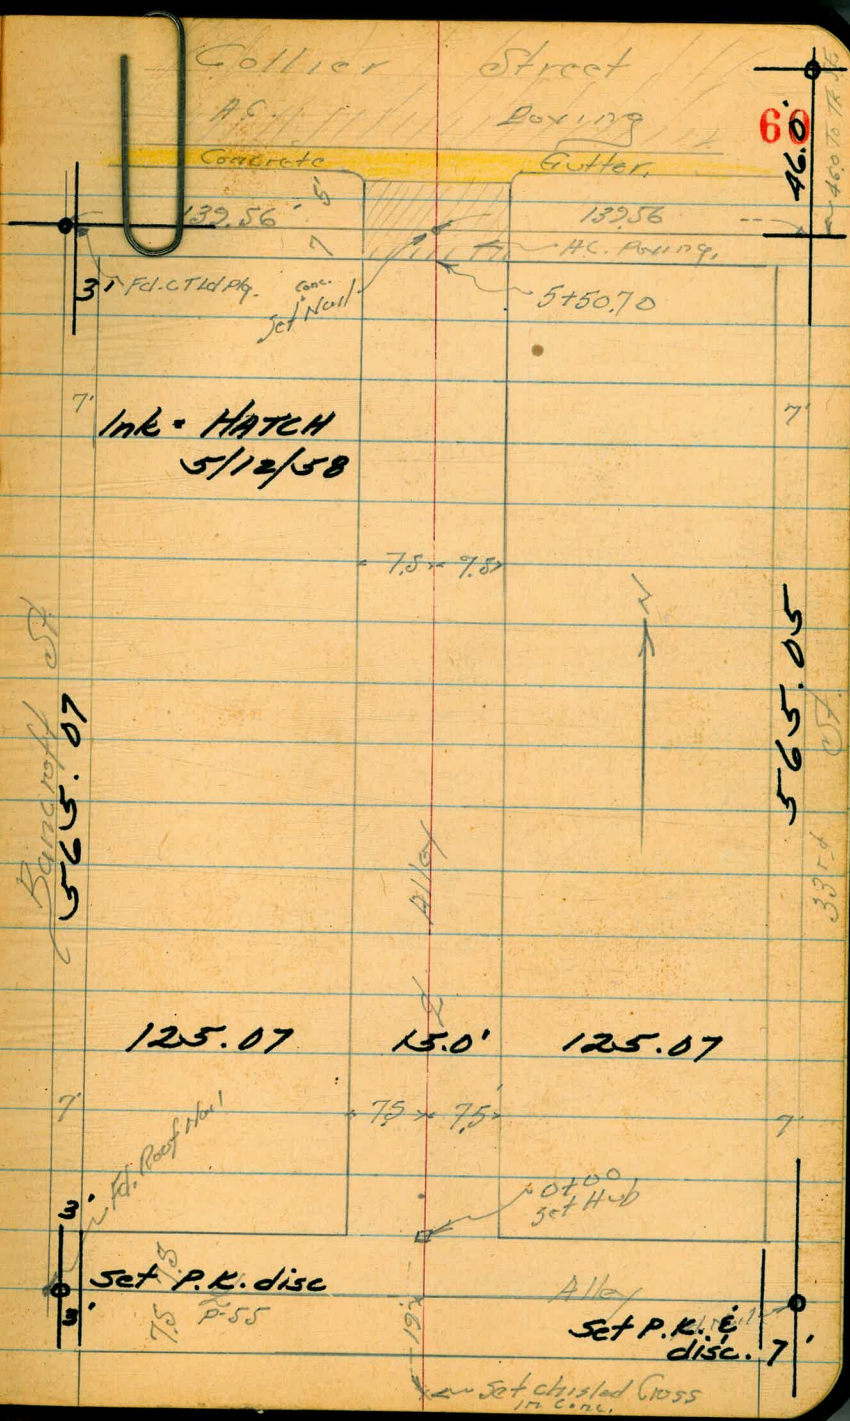 Collier Street
A.C. Paving
60
46.0'
46.0 To TR
Concrete Gutter.
5'
139.56' 139.56
7
A.C. Paving.
3' Fd. C Tld Plg. conc.
Set Nail
5+50.70
7' 7'
Ink = HATCH
5/12/58
7.5 7.5
N
Bancroft St.
565.07
565.05
33rd St.
Alley
125.07 15.0' 125.07
7' 7.5 7.5 7'
Fd. Roof Nail
0+00
Set Hub
3'
Set P.K. disc
7.5
3'
7.5
P-55
Alley
Set P.K. &
disc. 7'
19'
Set chisled Cross
in Conc.